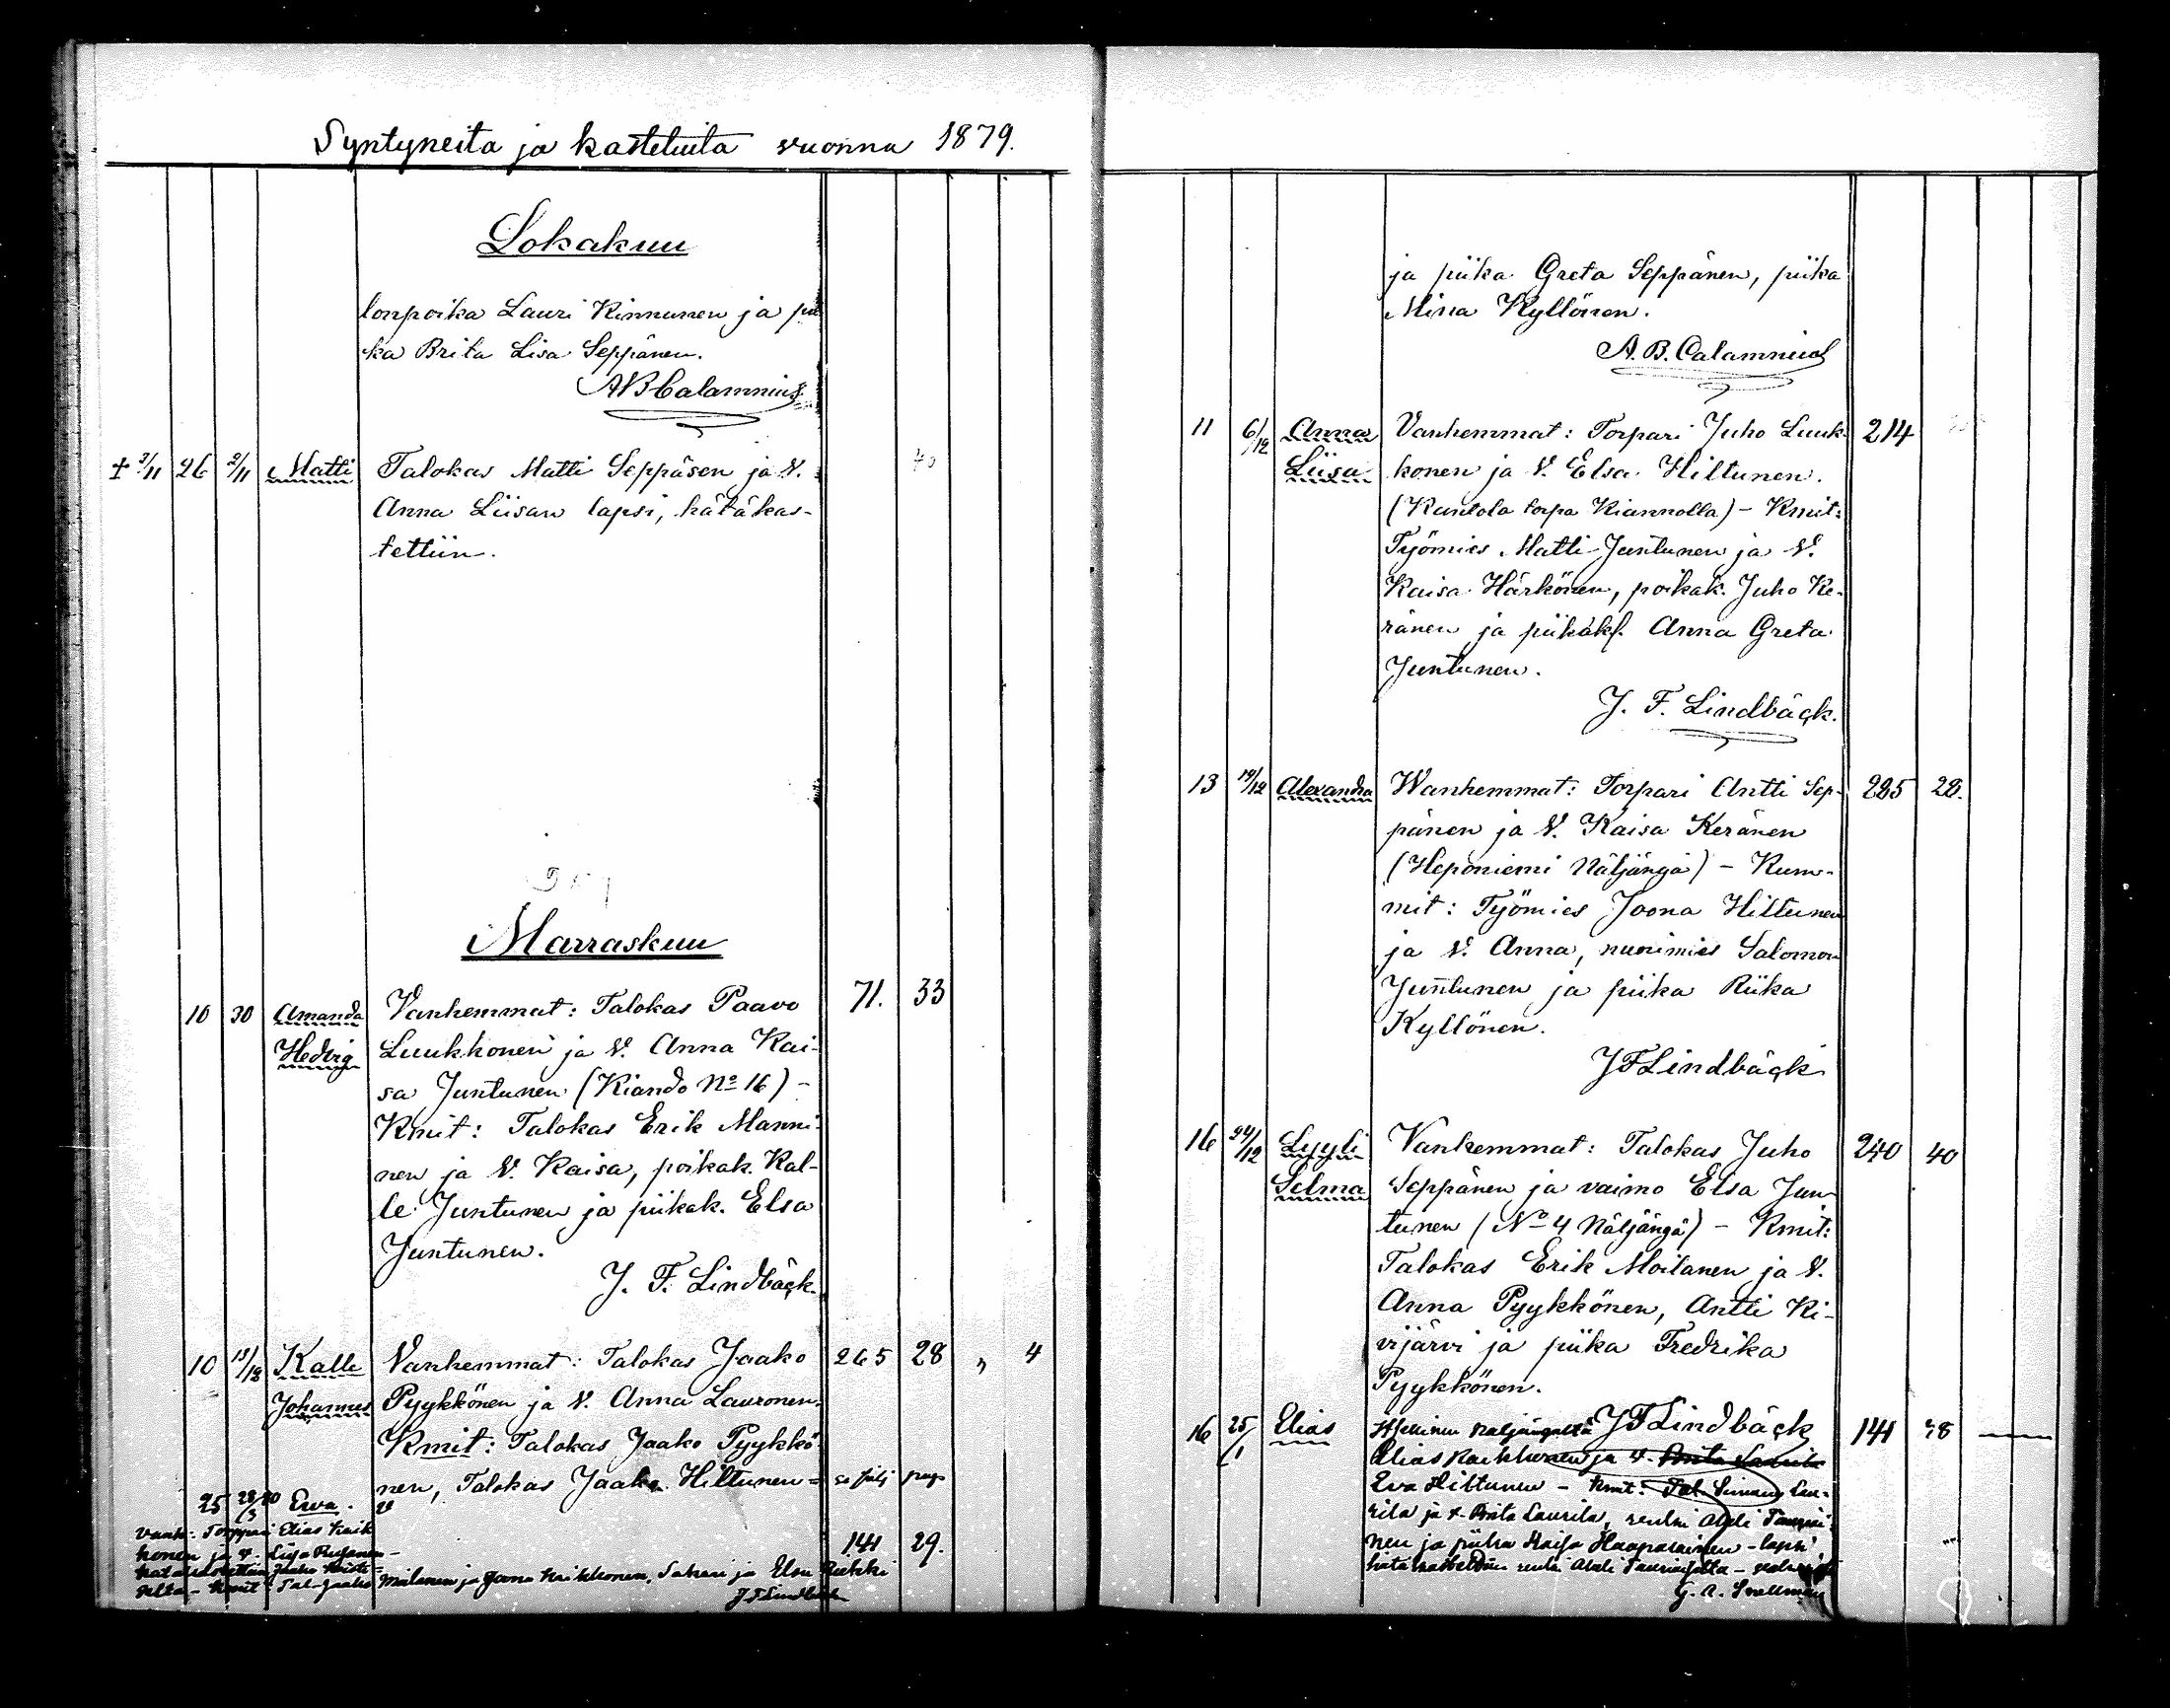 Syntyneita ja kastetuita vuonna 1879.
Lokakuu
lonpoika Lauri Kinnunen ja pii
ka Brita Lisa Seppänen.
A B Calamnius
† 2/11 26 2/11 Matti Talokas Matti Seppäsen ja V.
Anna Liisan lapsi, hätäkas-
tettiin.
Marraskuu
10 30 Amanda Vanhemmat: Talokas Paavo 71. 33
Hedvig Luukkonen ja V. Anna Kai-
sa Juntunen (Kiando No 16) -
Kmit: Talokas Erik Manni-
nen ja V. Kaisa, poikak. Kal-
le Juntunen ja piikak. Elsa
Juntunen.
J. F. Lindbäck.
10 Kalle Vanhemmat: Talokas Jaako 265 28 " 4
Johannes Pyykkönen ja V. Anna Lauronen.
Kmit: Talokas Jaako Pyykkö
nen, Talokas Jaako Hiltunen =
25 Eva.
Vanh: Torppari Elias Kaik
konen ja V. Liisa 141 29.
Kmit: Tal. Jaako Moilanen ja Kaikkonen, Sakari ja Elsa
J F Lindbäck
ja piika Greta Seppänen, piika
Mina Kyllönen.
A. B. Calamnius
11 6/12 Anna Vanhemmat: Torpari Juho Luuk- 214
Liisa konen ja V. Elsa Hiltunen.
(Kantola torpa Kiannolla) - Kmit:
Työmies Matti Juntunen ja V.
Kaisa Härkönen, poikak. Juho Ke-
ränen ja piikak. Anna Greta
Juntunen.
J. F. Lindbäck.
13 19/12 Alexandra Wanhemmat: Torpari Antti Sep- 225 28.
pänen ja V. Kaisa Keränen
(Heponiemi Näljängä) - Kum-
mit: Työmies Joona Hiltunen
ja V. Anna, nuorimies Salomon
Juntunen ja piika Riika
Kyllönen.
J F Lindbäck
16 24/12 Lyyli Vanhemmat: Talokas Juho 240 40
Selma Seppänen ja vaimo Elsa Jun-
tunen (No 4 Näljängä) - Kmit:
Talokas Erik Moilanen ja V.
Anna Pyykkönen, Antti Ki-
vijärvi ja piika Fredrika
Pyykkönen.
J F Lindbäck
16 25/1 Elias Näljängältä 141 28
Elias Kaikkonen ja V. Brita Laurila
Eva Hiltunen - Kmit: Tal. Simana Lau-
rila ja V. Brita Laurila, renki Abeli Tauriai
nen ja piika Kaisa Haapalainen - lapsi
hätäkastettiin renki Abeli Tauriaiselta -
G. A. Snellman